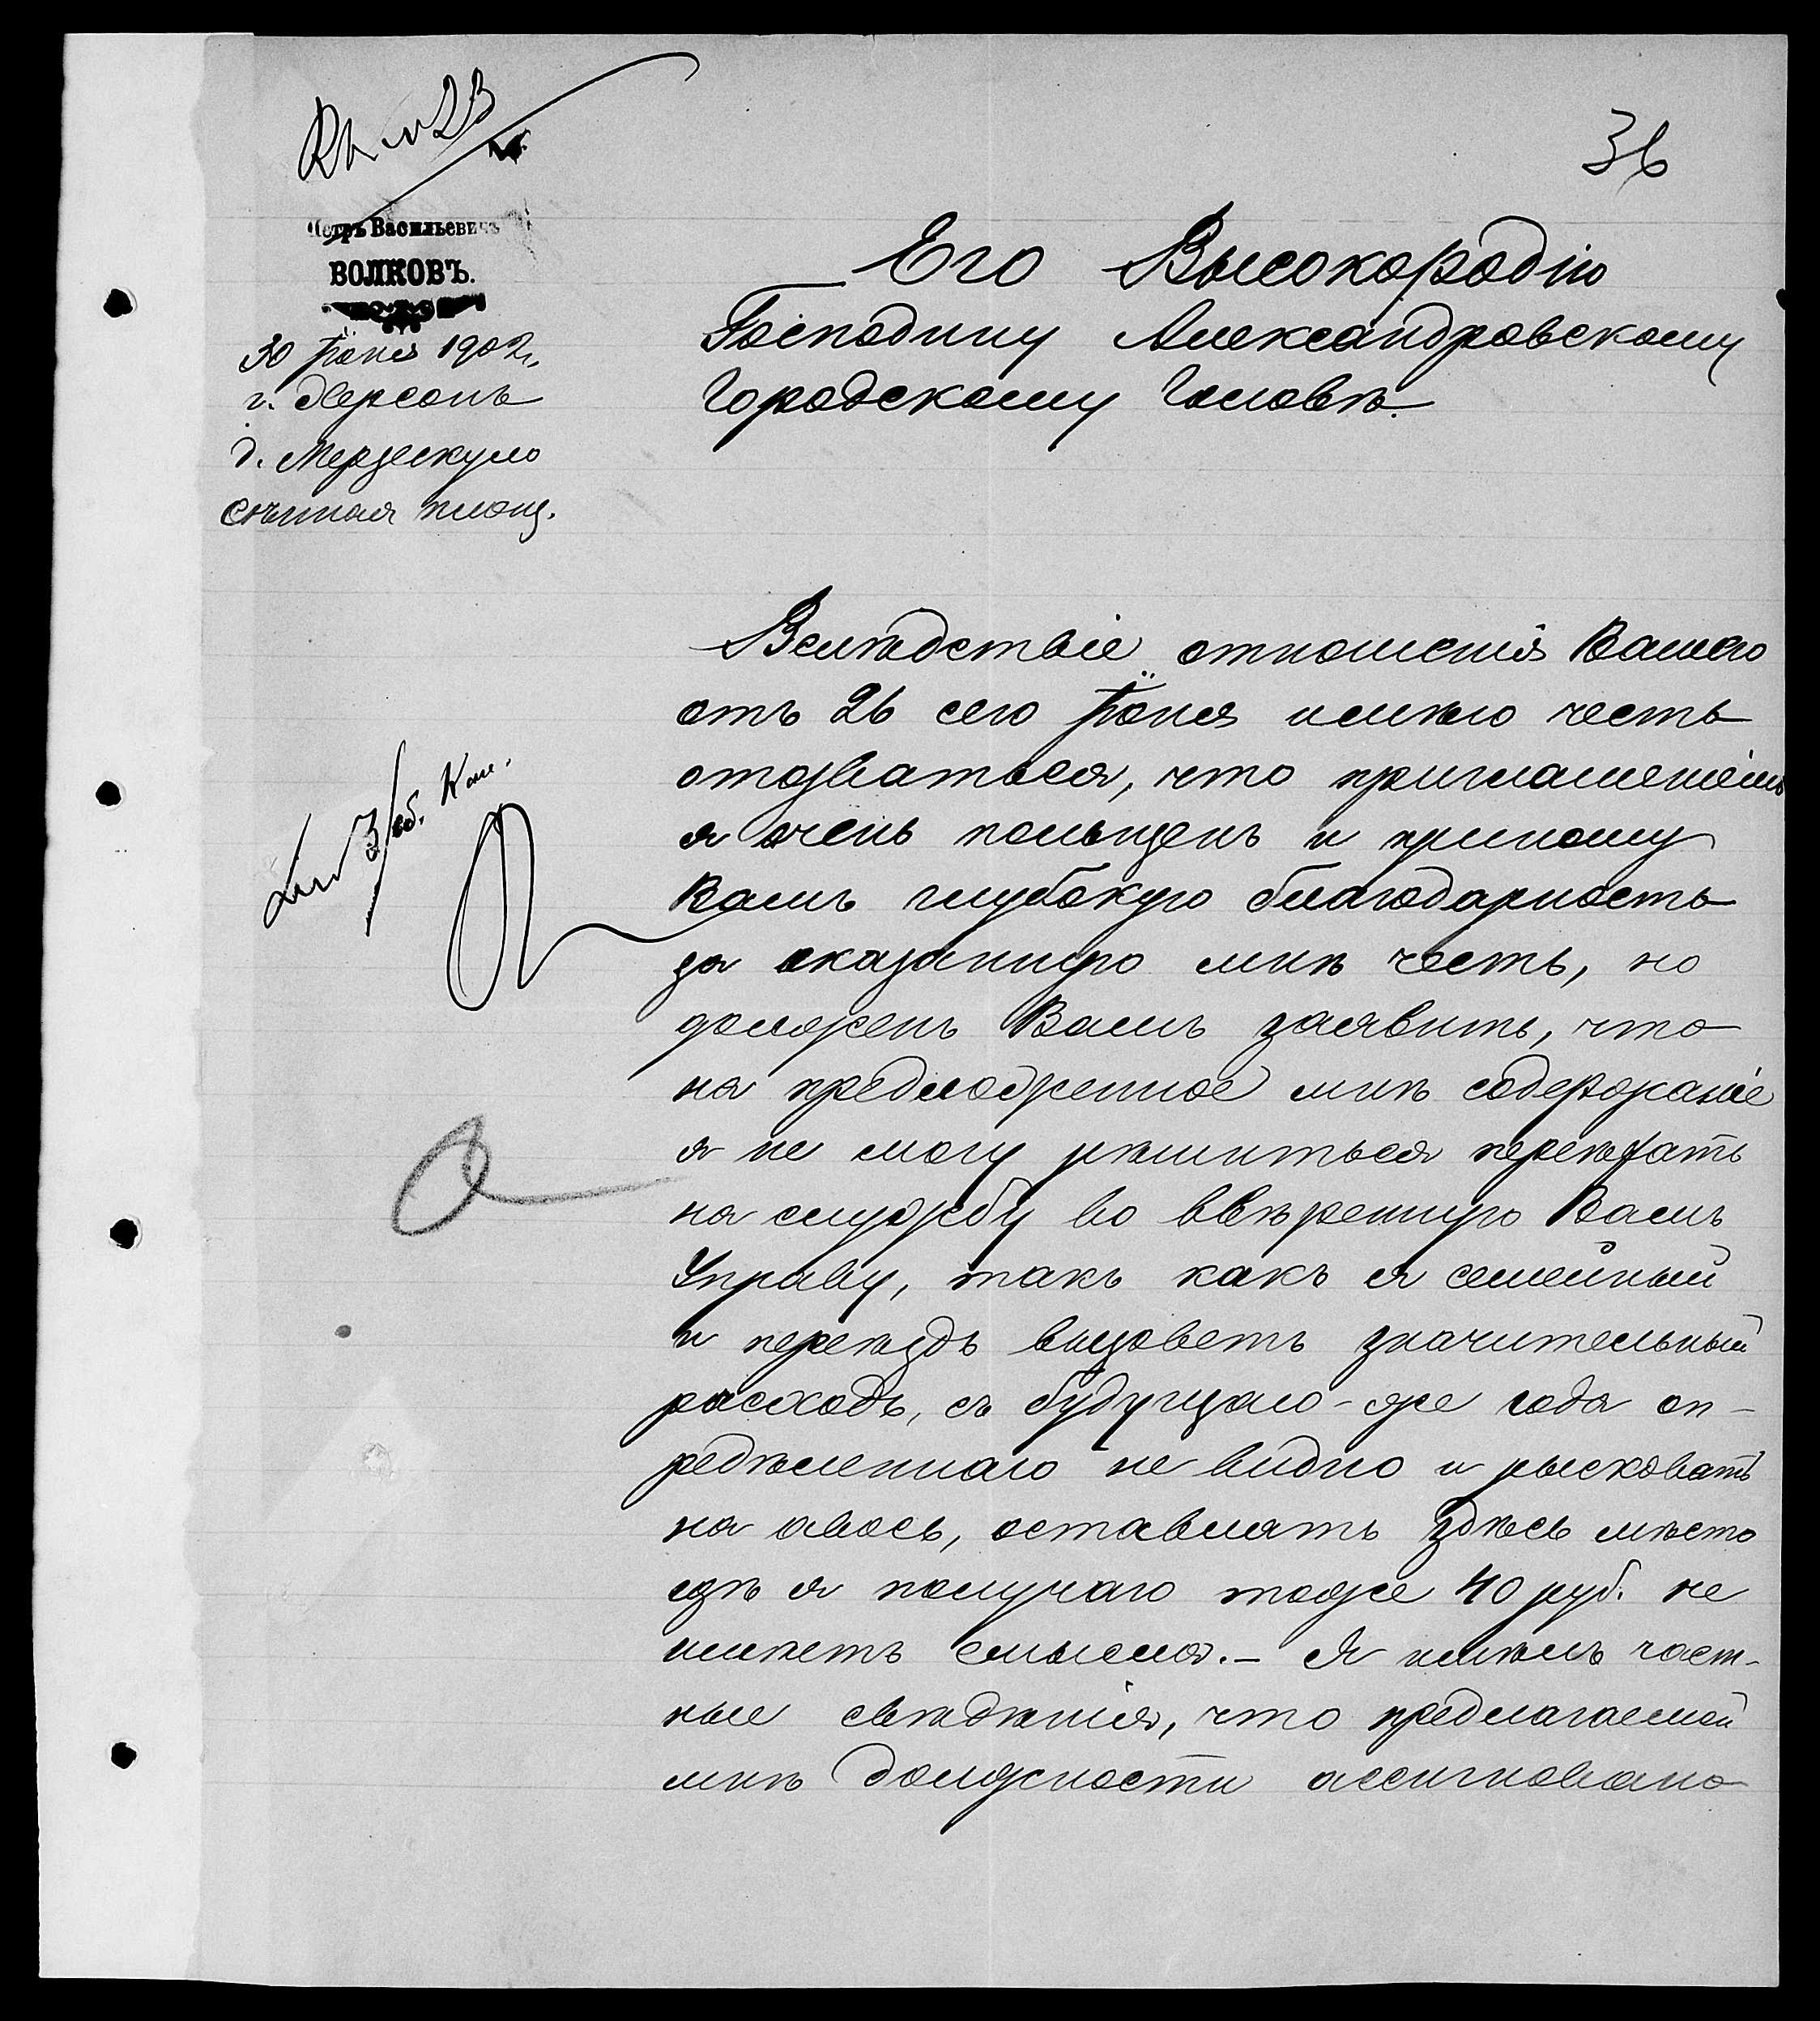 36
Петръ Васильевичъ
ВОЛКОВЪ.
30 Іюня 1902 г.
г. Херсонъ
д. Мерзескуло
Сѣнная площ.
Его Высокородію
Господину Александровскому
Городскому Головѣ.
Вслѣдствіе отношенія Вашего
отъ 26 сего Іюня имѣю честь
отозваться, что приглашеніемъ
я очень польщенъ и приношу
Вамъ глубокую благодарность
за оказанную мнѣ честь, но
долженъ Вамъ заявить, что
на предложенное мнѣ содержаніе
я не могу рѣшиться переѣхать
на службу во ввѣренную Вамъ
Управу, такъ какъ я семейный
и переѣздъ вызоветъ значительный
расходъ, съ будущаго-же года оп-
редѣленнаго не видно и рысковать
на авось, оставлять здѣсь мѣсто
гдѣ я получаю тоже 40 руб. не
имѣетъ смысла.- Я имѣлъ част-
ные свѣдѣнія, что предлагаемой
мнѣ должности ассигновано